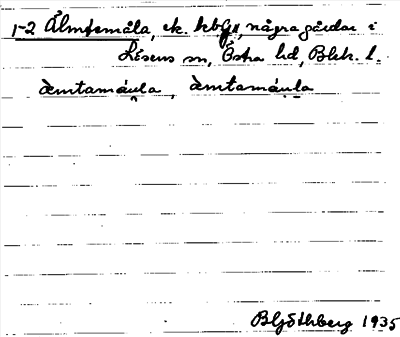 1-2 Älmtemåla, ek. kbl, några gårdar i
Lösens sn, Östra hd, Blek. l.
ämtamåula, ämtamåula
B Göthberg 1935